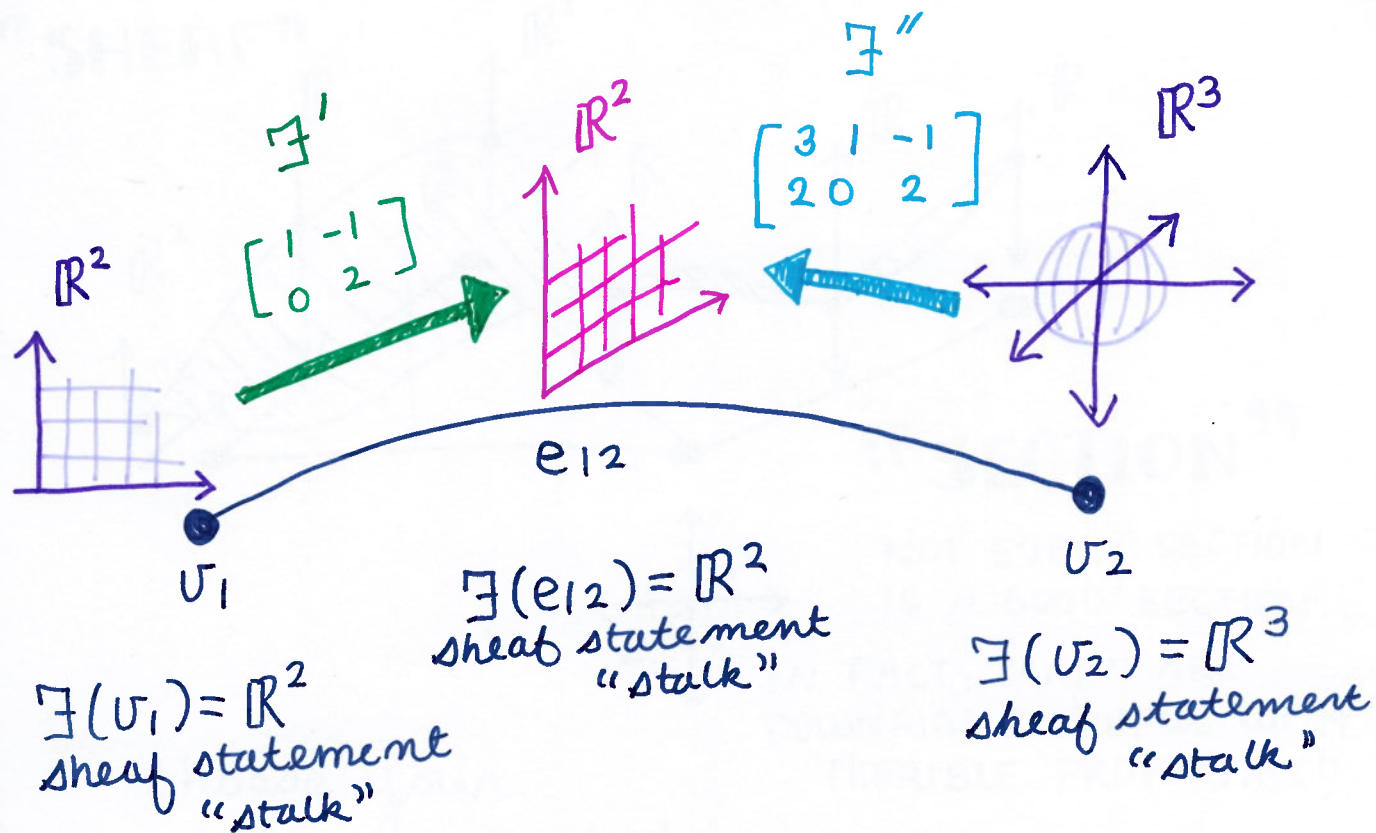 ℱ′
[1 -1
0 2]
ℝ²
ℝ²
ℱ″
[3 1 -1
2 0 2]
ℝ³
e12
v1
v2
ℱ(v1) = ℝ²
sheaf statement
“stalk”
ℱ(e12) = ℝ²
sheaf statement
“stalk”
ℱ(v2) = ℝ³
sheaf statement
“stalk”